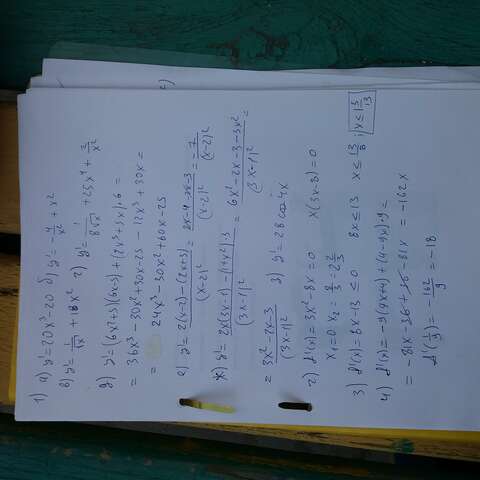 1) а) y'=20x³-20 б) y'=-4/x²+x²
в) y'=1/√x+18x² г) y'=1/8√x+25x⁴+3/x²
д) y'=(6x²+5)(6x-5)+(2x³+5x)·6=
=36x³-30x²+30x-25-12x³+30x=
=24x³-30x²+60x-25
е) y'=2(x-2)-(2x+3)/(x-2)²=2x-4-2x-3/(x-2)²=-7/(x-2)²
ж) y'=2x(3x-1)-(1+x²)·3/(3x-1)²=6x²-2x-3-3x²/(3x-1)²=
=3x²-2x-3/(3x-1)² з) y'=28cos4x
2) f'(x)=3x²-8x=0 x(3x-8)=0
x₁=0 x₂=8/3=2 2/3
3) f'(x)=8x-13≤0 8x≤13 x≤13/8; x≤1 5/13
4) f'(x)=-9(9x+4)+(4-9x)·9=
=-81x-36+36-81x=-162x
f'(1/9)=-162/9=-18.